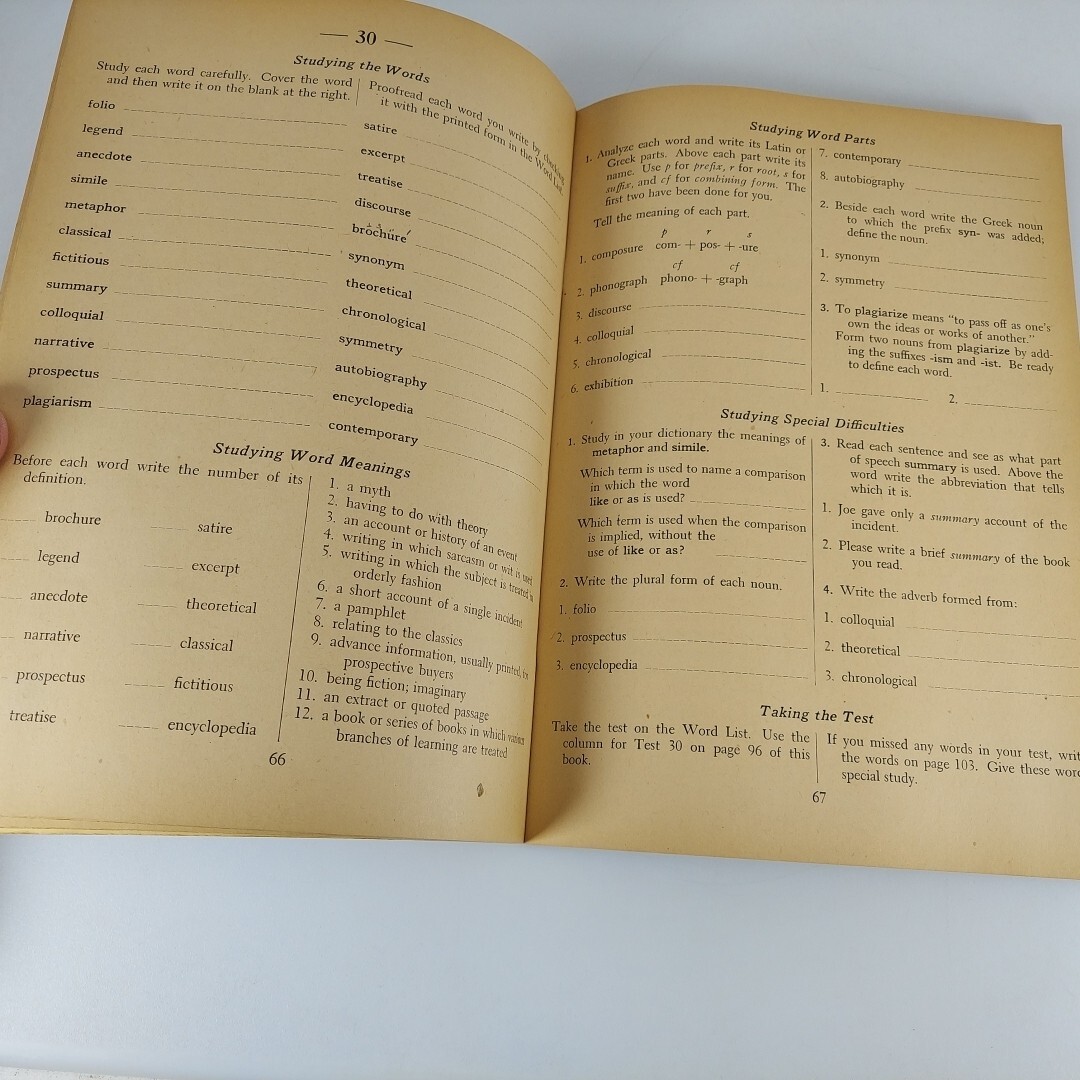 — 30 —
Studying the Words
Study each word carefully. Cover the word
and then write it on the blank at the right.
Proofread each word you write by checking
it with the printed form in the Word List.
folio
legend
anecdote
simile
metaphor
classical
fictitious
summary
colloquial
narrative
prospectus
plagiarism
satire
excerpt
treatise
discourse
brochure
synonym
theoretical
chronological
symmetry
autobiography
encyclopedia
contemporary
Studying Word Meanings
Before each word write the number of its
definition.
brochure
legend
anecdote
narrative
prospectus
treatise
satire
excerpt
theoretical
classical
fictitious
encyclopedia
1. a myth
2. having to do with theory
3. an account or history of an event
4. writing in which sarcasm or wit is used
5. writing in which the subject is treated in
orderly fashion
6. a short account of a single incident
7. a pamphlet
8. relating to the classics
9. advance information, usually printed, for
prospective buyers
10. being fiction; imaginary
11. an extract or quoted passage
12. a book or series of books in which various
branches of learning are treated
66
Studying Word Parts
1. Analyze each word and write its Latin or
Greek parts. Above each part write its
name. Use p for prefix, r for root, s for
suffix, and cf for combining form. The
first two have been done for you.
Tell the meaning of each part.
p r s
1. composure com- + pos- + -ure
cf cf
2. phonograph phono- + -graph
3. discourse
4. colloquial
5. chronological
6. exhibition
7. contemporary
8. autobiography
2. Beside each word write the Greek noun
to which the prefix syn- was added;
define the noun.
1. synonym
2. symmetry
3. To plagiarize means "to pass off as one's
own the ideas or works of another."
Form two nouns from plagiarize by add-
ing the suffixes -ism and -ist. Be ready
to define each word.
1. 2.
Studying Special Difficulties
1. Study in your dictionary the meanings of
metaphor and simile.
Which term is used to name a comparison
in which the word
like or as is used?
Which term is used when the comparison
is implied, without the
use of like or as?
2. Write the plural form of each noun.
1. folio
2. prospectus
3. encyclopedia
3. Read each sentence and see as what part
of speech summary is used. Above the
word write the abbreviation that tells
which it is.
1. Joe gave only a summary account of the
incident.
2. Please write a brief summary of the book
you read.
4. Write the adverb formed from:
1. colloquial
2. theoretical
3. chronological
Taking the Test
Take the test on the Word List. Use the
column for Test 30 on page 96 of this
book.
If you missed any words in your test, writ
the words on page 103. Give these word
special study.
67